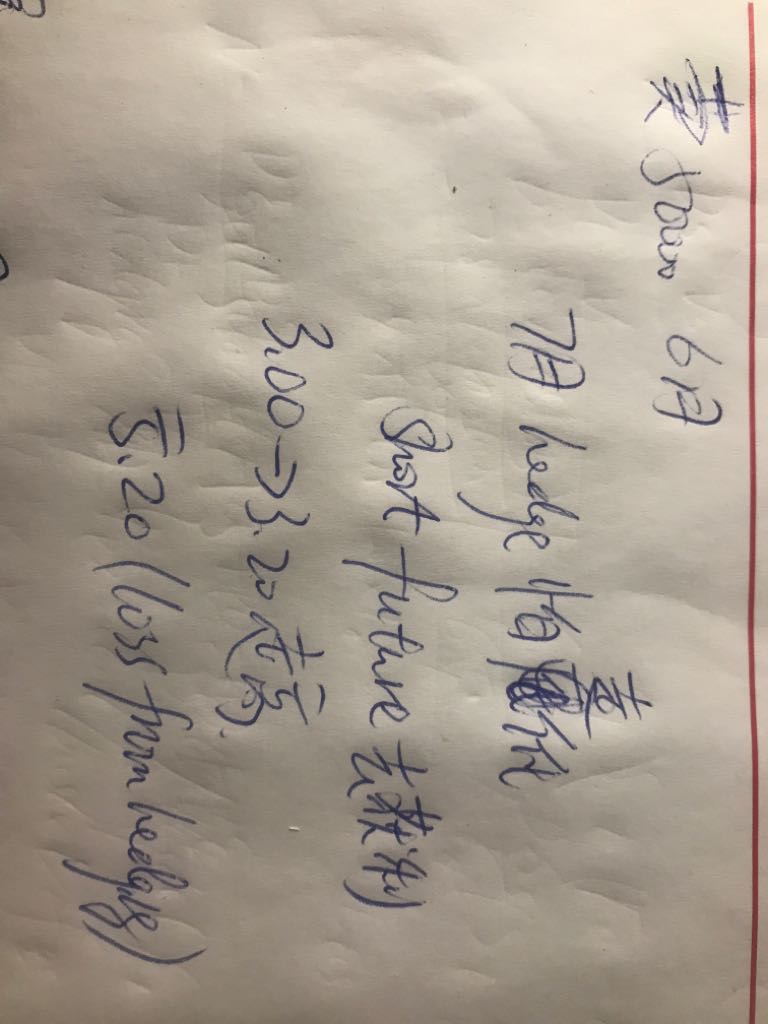 卖 5000 6月
7月 hedge 怕卖低
Short future 去套利
3.00→3.20走高
5.20 (loss from hedging)